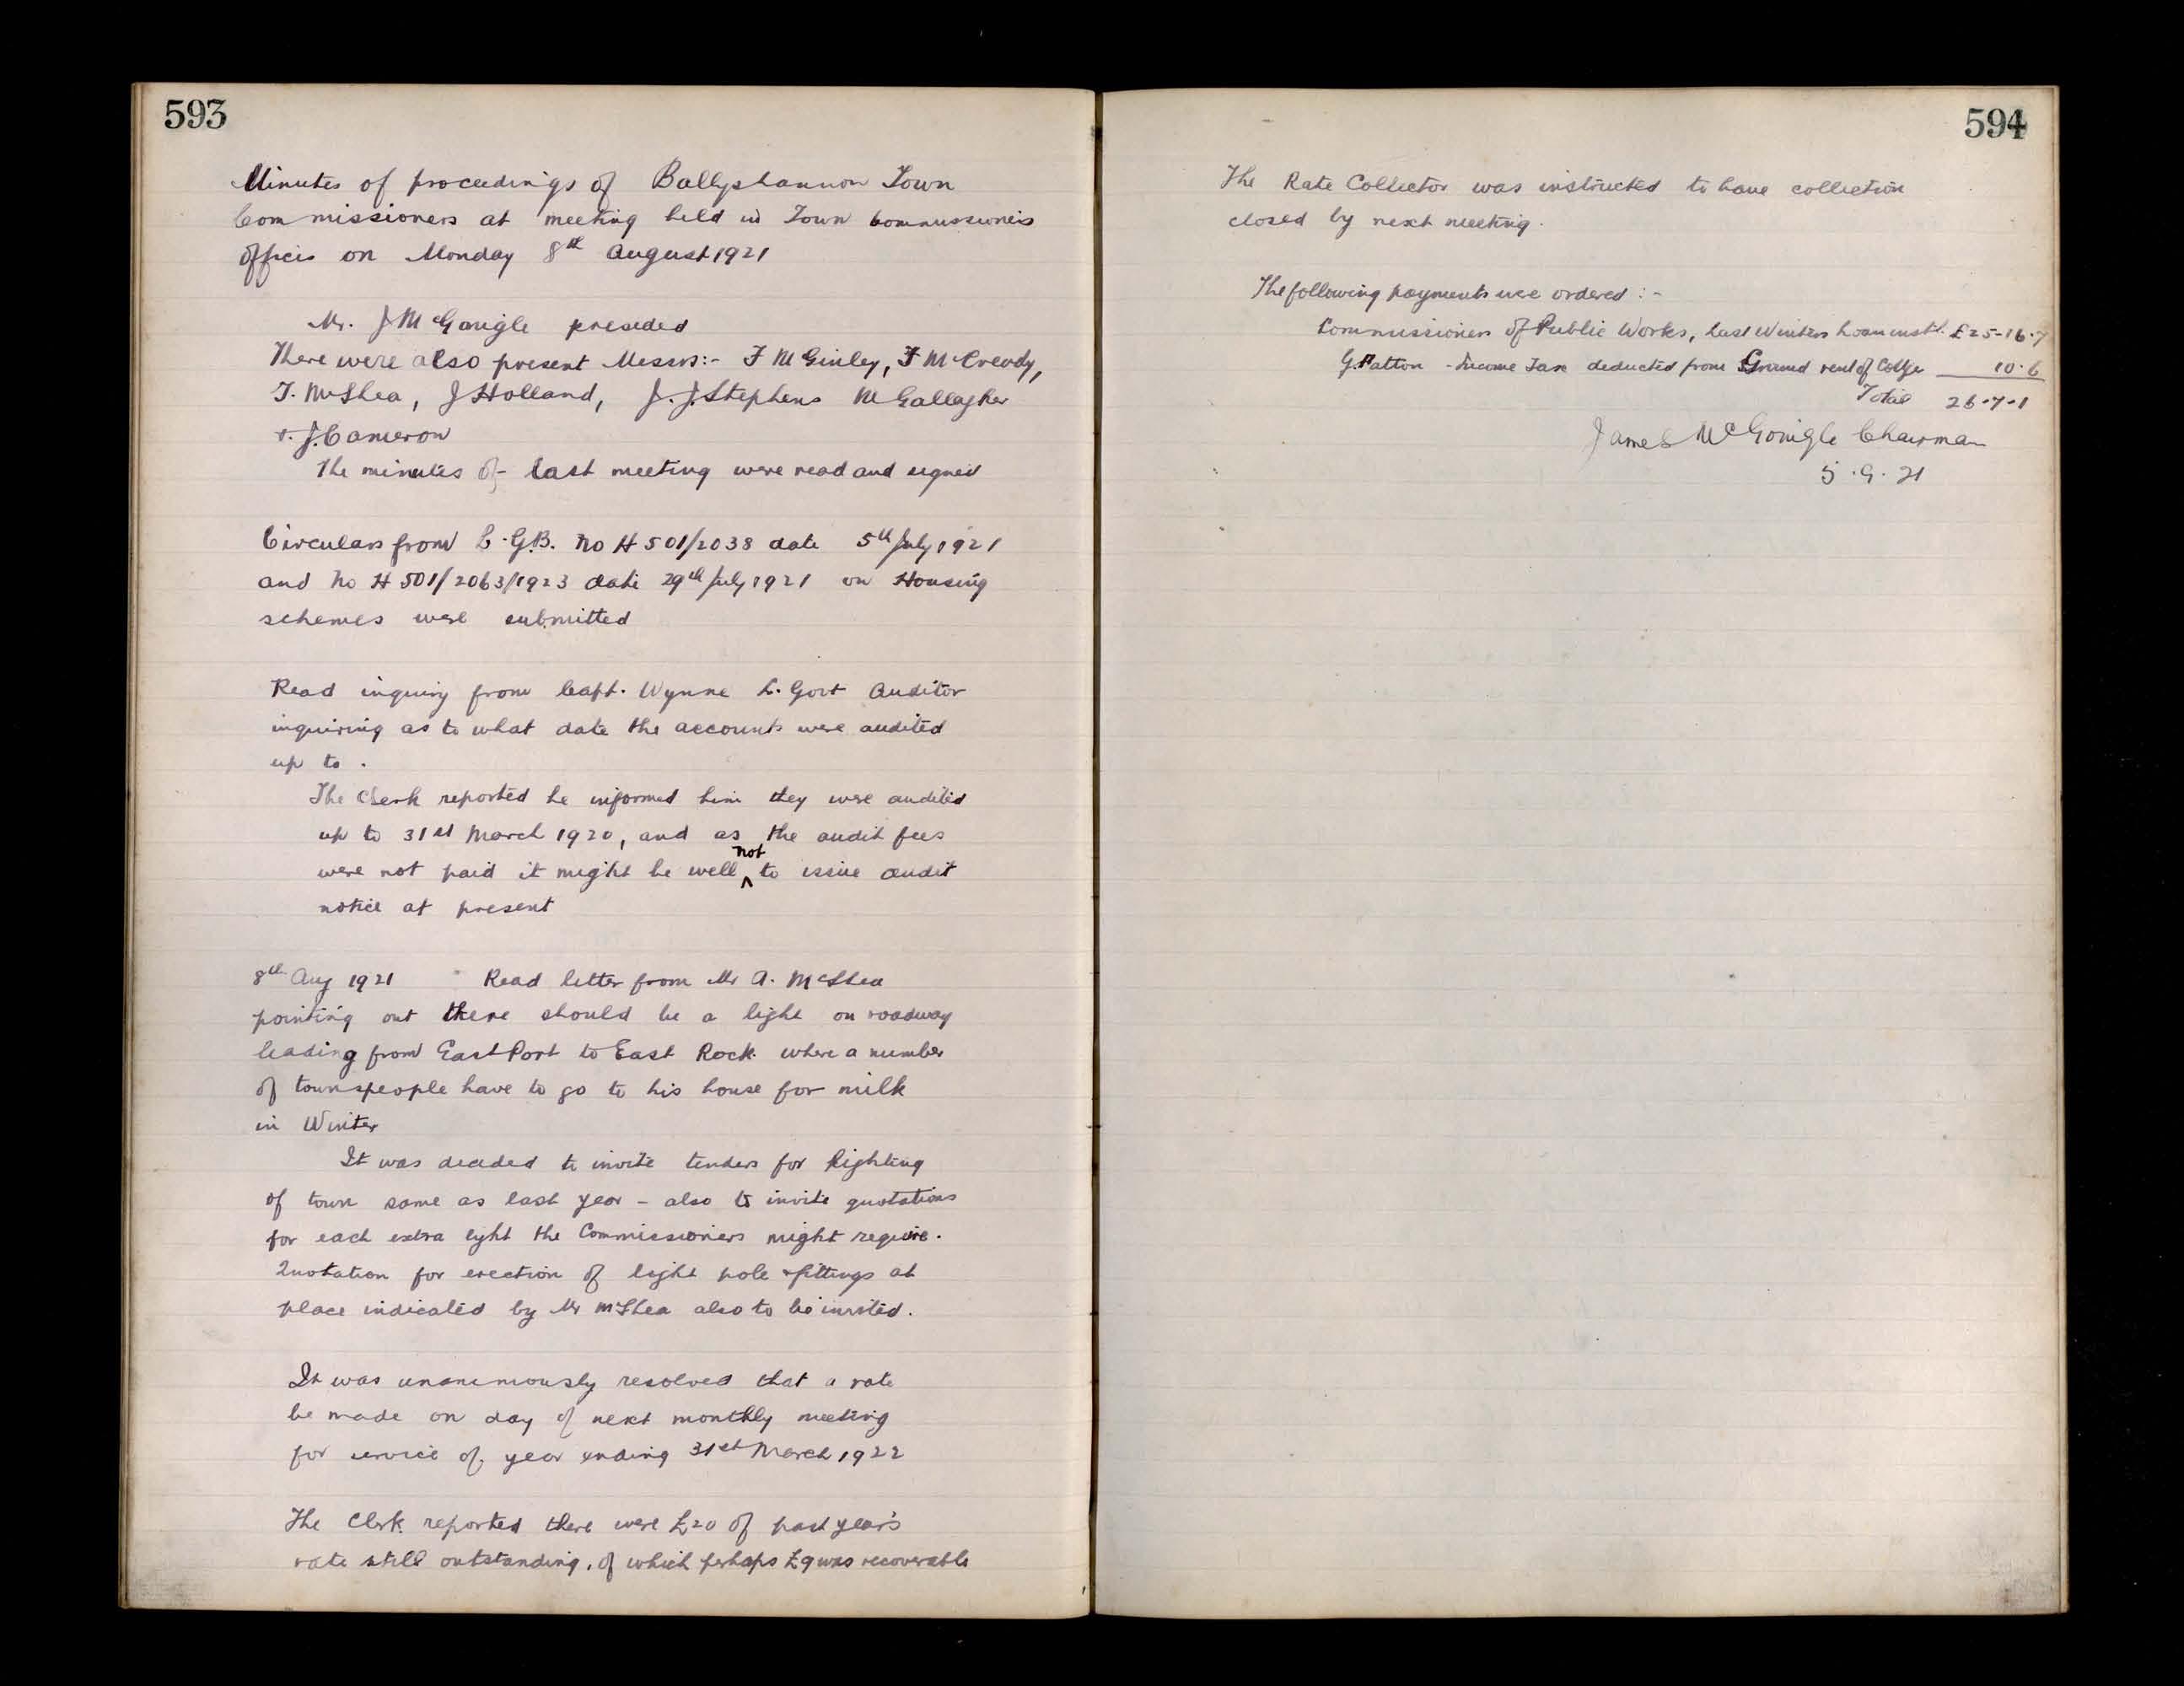 593
Minutes of proceedings of Ballyshannon Town
Commissioners at meeting held in Town Commissioners
offices on Monday 8th August 1921
Mr. J McGonigle presided
There were also present Messrs:- F McGinley, F McCready,
T. McShea, J Holland, J. J. Stephens M Gallagher
+ J. Cameron
The minutes of last meeting were read and signed
Circulars from L.G.B. No H 501/2038 date 5th July 1921
and No H 501/2063/1923 date 29th July 1921 on Housing
schemes were submitted
Read inquiry from Capt. Wynne L. Govt Auditor
inquiring as to what date the accounts were audited
up to.
The Clerk reported he informed him they were audited
up to 31st March 1920, and as the audit fees
were not paid it might be well not to issue audit
notice at present
8th Aug 1921 Read letter from Mr A. McShea
pointing out there should be a light on roadway
leading from East Port to East Rock where a number
of townspeople have to go to his house for milk
in Winter
It was decided to invite tenders for lighting
of town same as last year - also to invite quotations
for each extra light the Commissioners might require.
Quotation for erection of light pole & fittings at
place indicated by Mr McShea also to be invited.
It was unanimously resolved that a rate
be made on day of next monthly meeting
for service of year ending 31st March 1922
The Clerk reported there were £20 of past year's
rate still outstanding, of which perhaps £9 was recoverable
594
The Rate Collector was instructed to have collection
closed by next meeting.
The following payments were ordered :-
Commissioners of Public Works, last Winters loan inst. £25-16-7
G. Patton - Income Tax deducted from Ground rent of Cottge 10.6
Total 26.7.1
James McGonigle Chairman
5.9.21